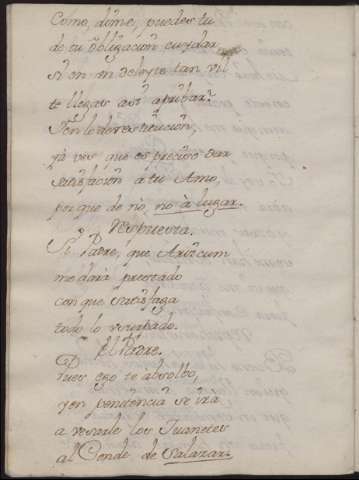 Como, dime, puedes tu
de tu obligacion cuydar
si en un deleyte tan vil
te llegas asi a pribar?
En lo de restitucion,
ya ves que es preciso dar
satisfacion à tu Amo,
porque de nò, no à lugar.
Respuesta.
Si Padre, que
me dara prestado
con que satisfaga
todo lo
El Padre.
Pues ego te absolbo,
y en penitencia se irà
a los Juanetes
al Conde de Salazar.